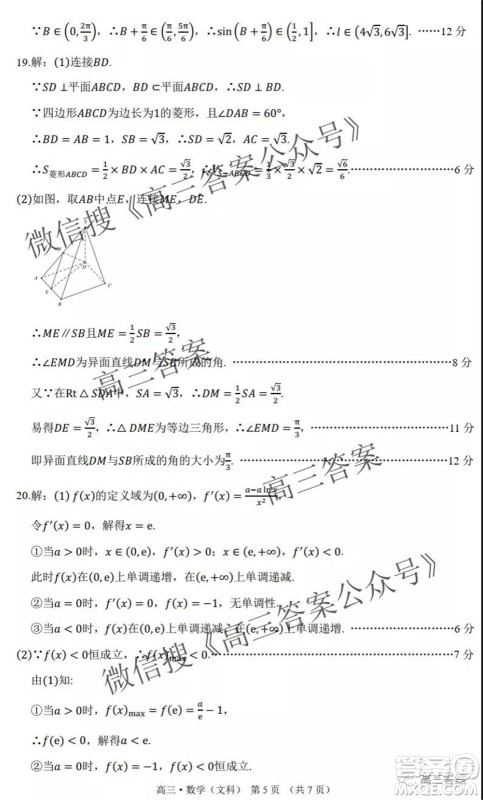 ∵B∈(0,2π/3), ∴B+π/6∈(π/6,5π/6), ∴sin(B+π/6)∈(1/2,1], ∴l∈(4√3,6√3]. ……12分
19.解：(1)连接BD.
∵SD⊥平面ABCD，BD⊂平面ABCD，∴SD⊥BD.
∵四边形ABCD为边长为1的菱形，且∠DAB=60°，
∴BD=AB=1，SB=√3，∴SD=√2，AC=√3.
∴S菱形ABCD=1/2×BD×AC=√3/2，∴V S−ABCD=1/3×√3/2×√2=√6/6.……6分
(2)如图，取AB中点E，连接ME，DE.
A
B
C
D
∴ME∥SB且ME=1/2SB=√3/2，
∴∠EMD为异面直线DM与SB所成的角.……8分
又∵在Rt△SDA中，SA=√3，∴DM=1/2SA=√3/2.
易得DE=√3/2，∴△DME为等边三角形，∴∠EMD=π/3，……11分
即异面直线DM与SB所成的角的大小为π/3.……12分
20.解：(1)f(x)的定义域为(0,+∞)，f′(x)=(a−a ln x)/x².
令f′(x)=0，解得x=e.
①当a>0时，x∈(0,e)，f′(x)>0；x∈(e,+∞)，f′(x)<0.
此时f(x)在(0,e)上单调递增，在(e,+∞)上单调递减.
②当a=0时，f′(x)=0，f(x)=−1，无单调性.
③当a<0时，f(x)在(0,e)上单调递减，在(e,+∞)上单调递增.……6分
(2)∵f(x)<0恒成立，∴f(x)max<0.……7分
由(1)知：
①当a>0时，f(x)max=f(e)=a/e−1，
∴f(e)<0，解得a<e.
②当a=0时，f(x)=−1，f(x)<0恒成立.
高三·数学（文科） 第5页 （共7页）
微信搜《高三答案公众号》
高三答案
高三答案
微信搜《高三答案公众号》
答案圈
MXQE.COM